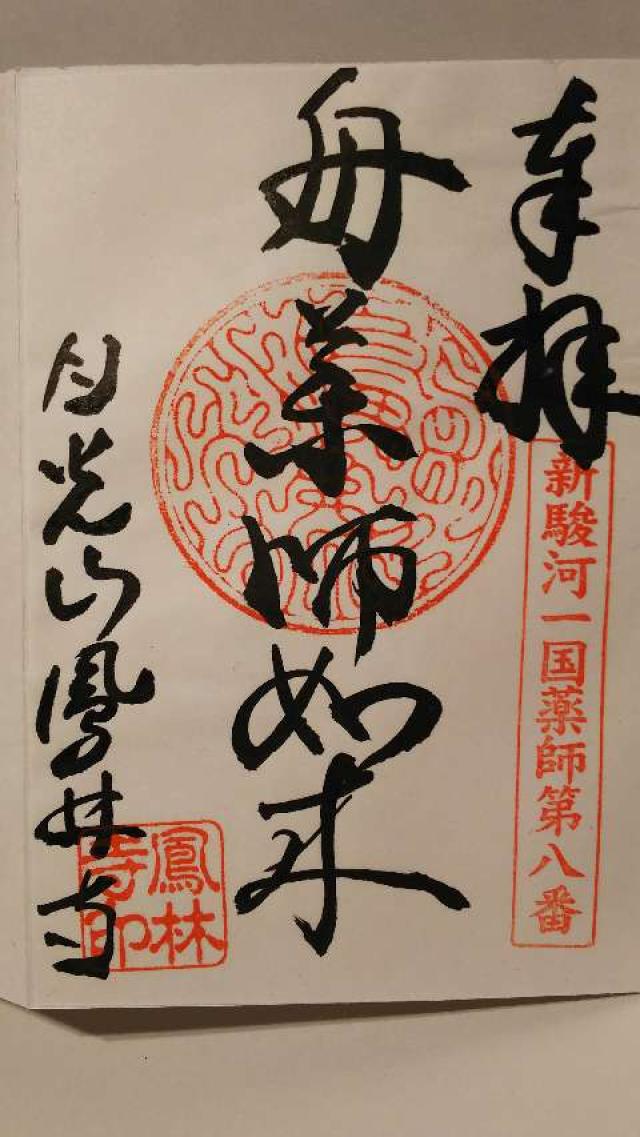 奉拝
新駿河一国薬師第八番
舟薬師如来
月光山鳳林寺
鳳林寺印